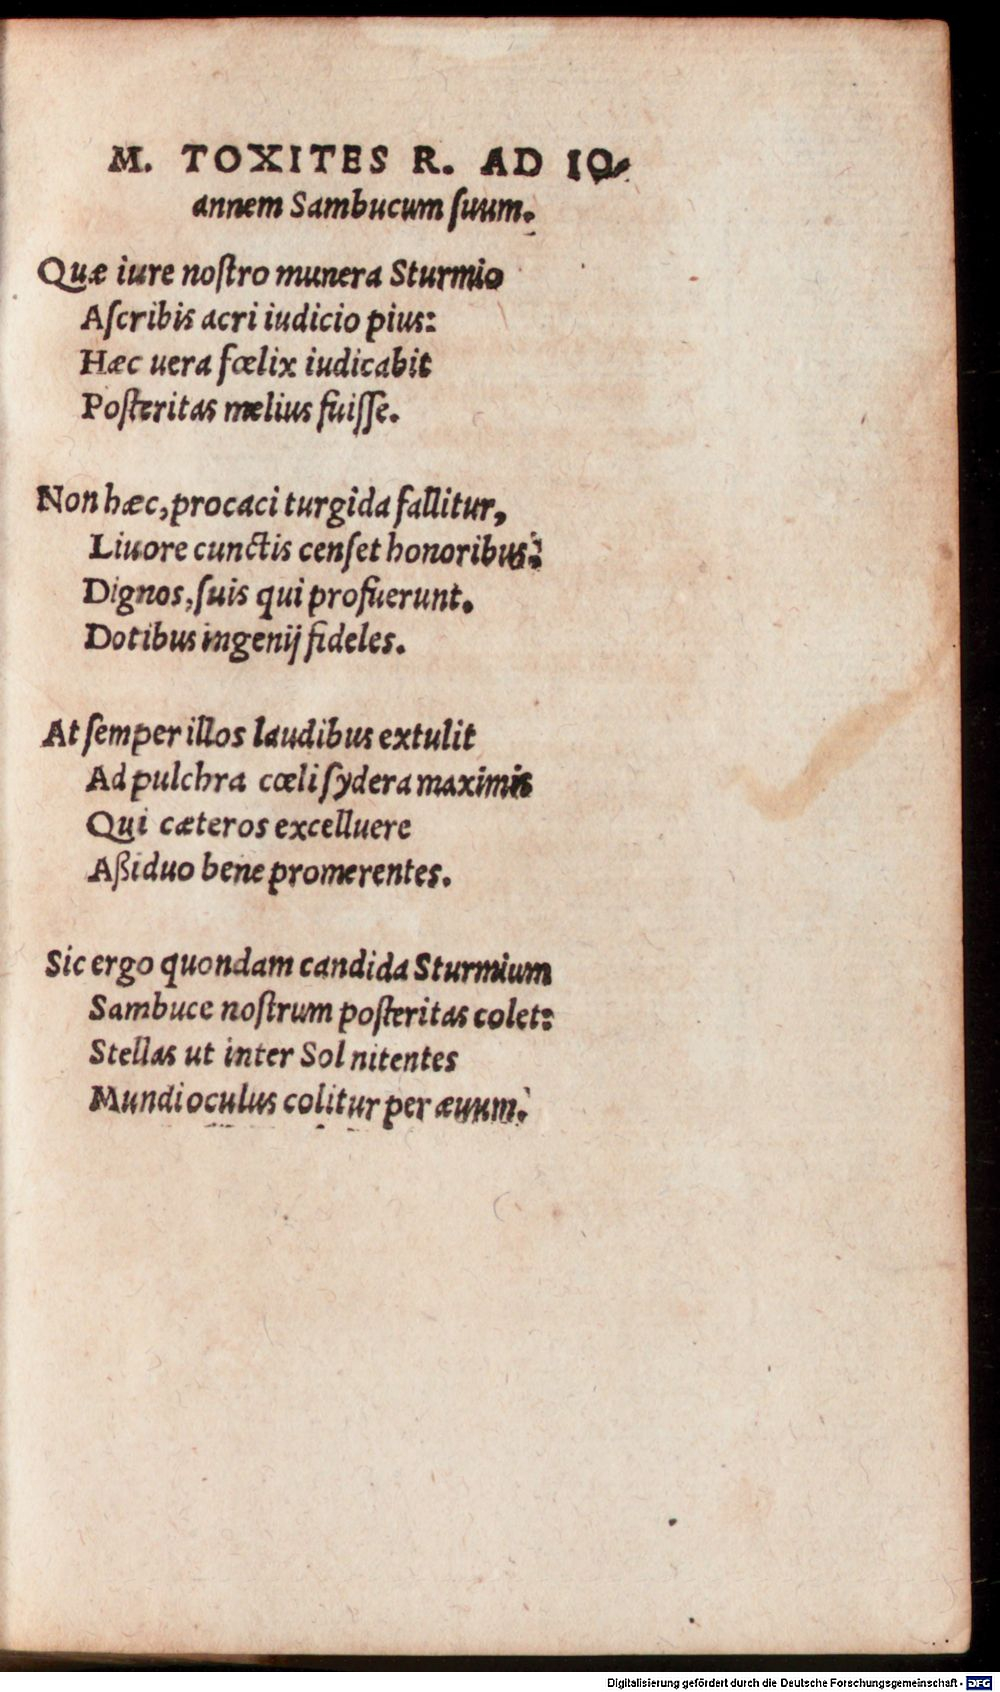 M. TOXITES R. AD IO-
annem Sambucum ſuum.
Quæ iure noſtro munera Sturmio
Aſcribis acri iudicio pius:
Hæc uera fœlix iudicabit
Poſteritas melius fuiſſe.
Non hæc, procaci turgida fallitur,
Liuore cunctis cenſet honoribus:
Dignos, ſuis qui profuerunt.
Dotibus ingenij fideles.
At ſemper illos laudibus extulit
Ad pulchra cœli ſydera maximis
Qui cæteros excelluere
Aßiduo bene promerentes.
Sic ergo quondam candida Sturmium
Sambuce noſtrum poſteritas colet:
Stellas ut inter Sol nitentes
Mundi oculus colitur per æuum.
Digitalisierung gefördert durch die Deutsche Forschungsgemeinschaft - DFG